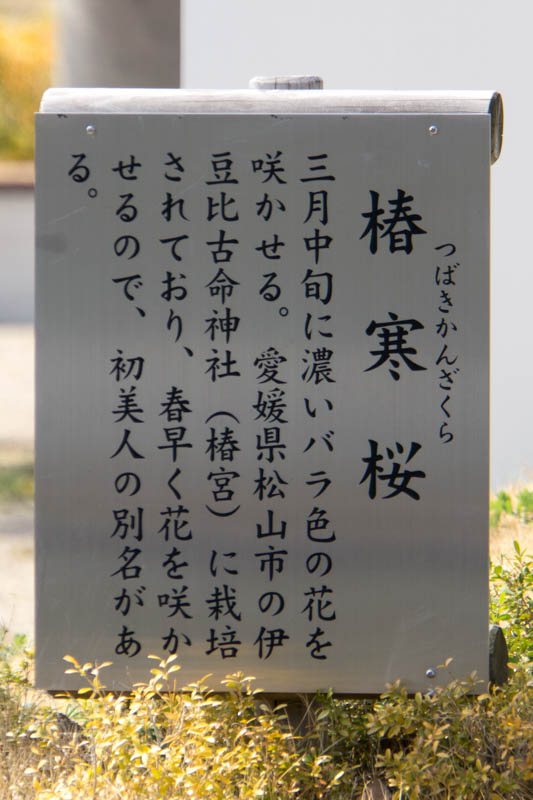 つばきかんざくら
椿寒桜
三月中旬に濃いバラ色の花を
咲かせる。愛媛県松山市の伊
豆比古命神社（椿宮）に栽培
されており、春早く花を咲か
せるので、初美人の別名があ
る。